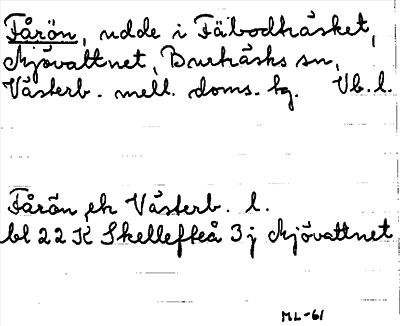 Fårön, udde i Fäbodträsket,
Mjövattnet, Burträsks sn,
Västerb. mell. doms. tg. Vb. l.
Fårön, ek Västerb. l.
bl 22 K Skellefteå 3 j Mjövattnet
ML-61